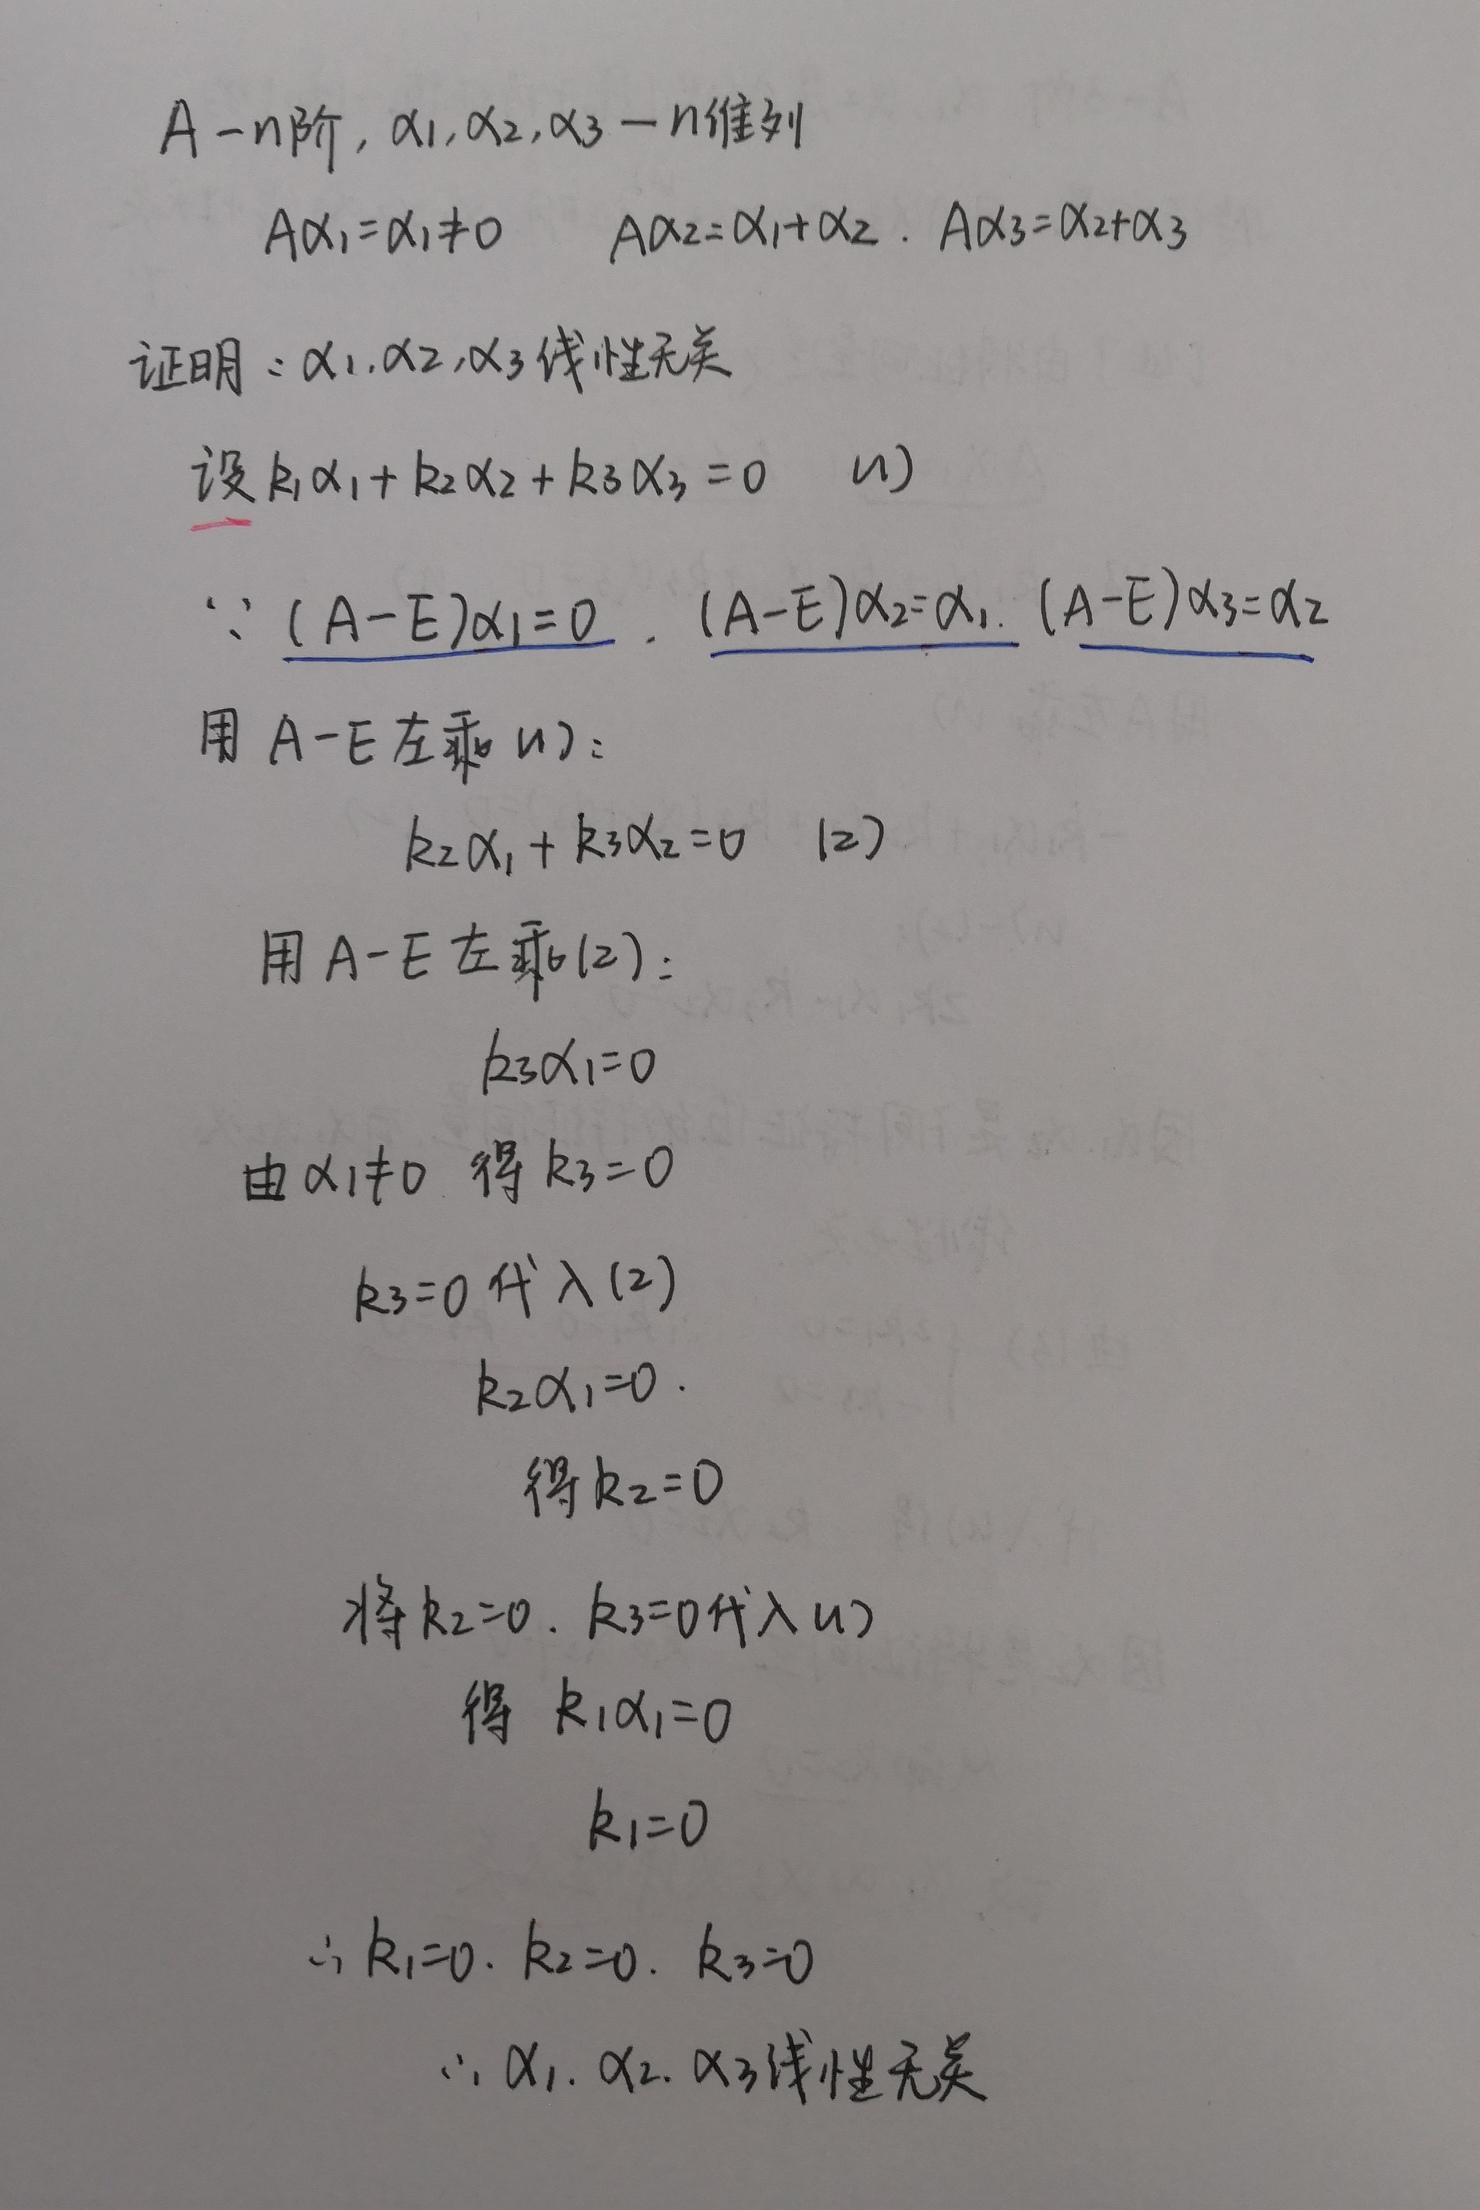 A-n阶, α1, α2, α3 - n维列
Aα1=α1≠0 Aα2=α1+α2. Aα3=α2+α3
证明: α1, α2, α3 线性无关
设 k1α1+k2α2+k3α3=0 (1)
∵ (A-E)α1=0. (A-E)α2=α1. (A-E)α3=α2
用 A-E 左乘 (1):
k2α1+k3α2=0 (2)
用 A-E 左乘 (2):
k3α1=0
由 α1≠0 得 k3=0
k3=0 代入 (2)
k2α1=0.
得 k2=0
将 k2=0. k3=0 代入 (1)
得 k1α1=0
k1=0
∴ k1=0. k2=0. k3=0
∴ α1. α2. α3 线性无关